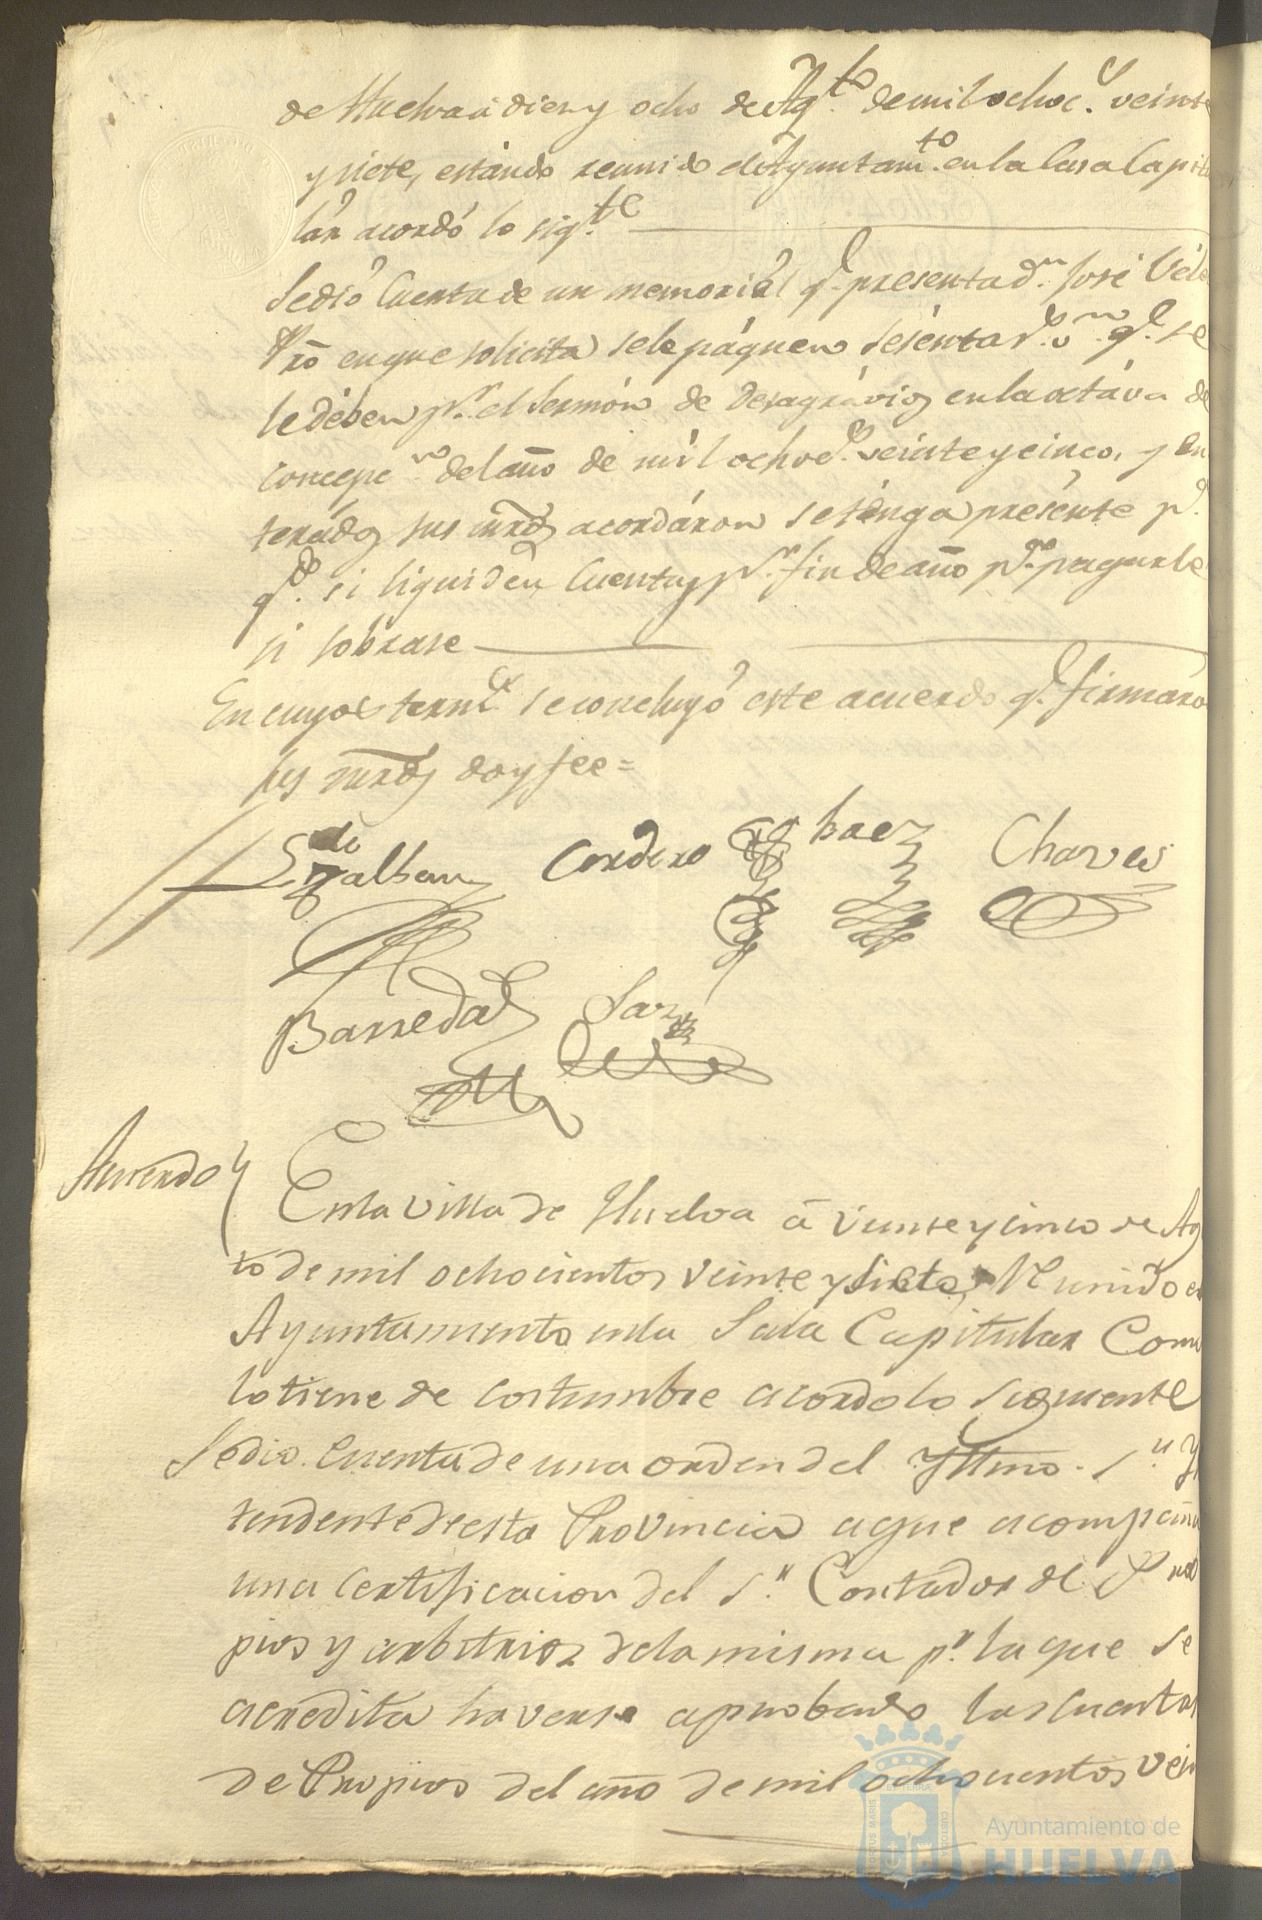 de Huelva á diez y ocho de Agto. de mil ochoc.s veinte
y siete, estándo reunido el Ayuntamto. en la Casa Capitu
lár acordó lo sigte.
Se dió Cuenta de un memoriál q.e presenta dn. José Véle
Pro en que solicita se le páguen sesenta r.s v.n q.e se
le dében p.r el Sermón de Desagrávios en la octáva de
Concepcn. del año de míl ochoc.s veinte y cinco, y en
terádos sus mrds acordáron se ténga presénte p.a
q.do se liquiden Cuentas p.r fin de año p.a pagarle
si sobrase
En cuyos térms. se concluyó este acuerdo q.e firmáro
sus mrds doy fee =
Cordero Baez Chaves
Barreda Saz
Acuerdo
En la Villa de Huelva á veinte y cinco de Ag
to de mil ochocientos veinte y siete, Reunido el
Ayuntamiento en la Sala Capitular Como
lo tiene de costumbre acordo lo siguiente
Se dio Cuenta de una orden del Yltmo. S.n Yn
tendente de esta Provincia a que acompaña
una Certificacion del S.r Contador de Pro
pios y arbitrios de la misma p.r la que se
acredita haverse aprobado las Cuentas
de Propios del año de mil ochocientos vein
Ayuntamiento de
HUELVA